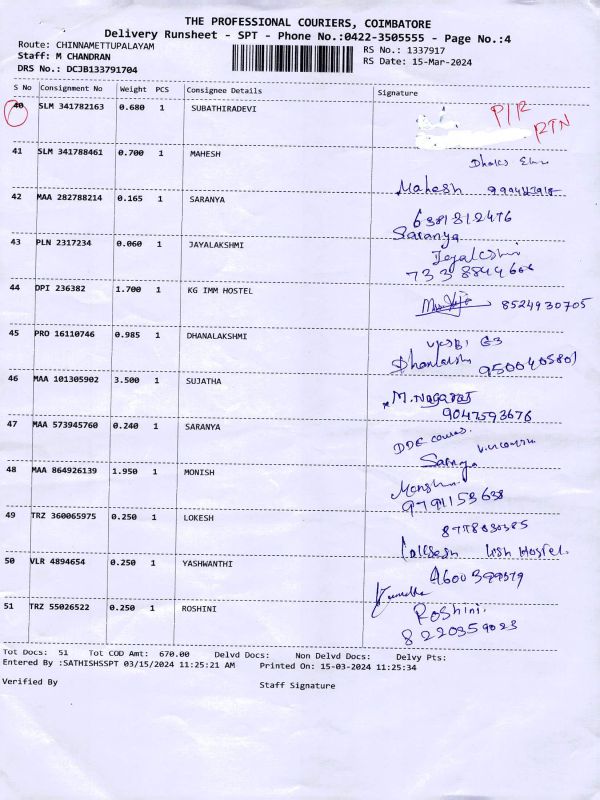 THE PROFESSIONAL COURIERS, COIMBATORE
Delivery Runsheet - SPT - Phone No.:0422-3505555 - Page No.:4
Route: CHINNAMETTUPALAYAM
RS No.: 1337917
Staff: M CHANDRAN
RS Date: 15-Mar-2024
DRS No.: DCJB133791704
S No Consignment No Weight PCS Consignee Details Signature
40 SLM 341782163 0.680 1 SUBATHIRADEVI
P/R
RTN
41 SLM 341788461 0.700 1 MAHESH
Mahesh
42 MAA 282788214 0.165 1 SARANYA
6381812476
Saranya
43 PLN 2317234 0.060 1 JAYALAKSHMI
44 DPI 236382 1.700 1 KG IMM HOSTEL
8524930705
45 PRO 16110746 0.985 1 DHANALAKSHMI
9500405801
46 MAA 101305902 3.500 1 SUJATHA
M.Nagaraj
9047593676
47 MAA 573945760 0.240 1 SARANYA
Saranya
48 MAA 864926139 1.950 1 MONISH
9791153638
49 TRZ 360065975 0.250 1 LOKESH
8778830385
Hostel.
50 VLR 4894654 0.250 1 YASHWANTHI
51 TRZ 55026522 0.250 1 ROSHINI
Roshini.
8220359023
Tot Docs: 51 Tot COD Amt: 670.00 Delvd Docs: Non Delvd Docs: Delvy Pts:
Entered By :SATHISHSSPT 03/15/2024 11:25:21 AM Printed On: 15-03-2024 11:25:34
Verified By
Staff Signature